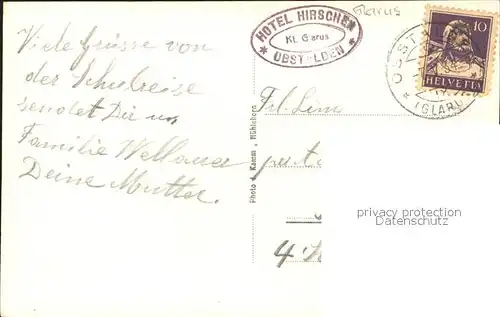 Viele Grüsse von
der Schulreise
sendet Dir u.
Familie Wellauer
Deine Mutter.
HOTEL HIRSCHEN
Kt. Glarus
OBSTALDEN
Glarus
10
HELVETIA
OBST
(GLARU
Photo J. Kamm, Mühlehorn
Frl. Lina
privacy protection
Datenschutz